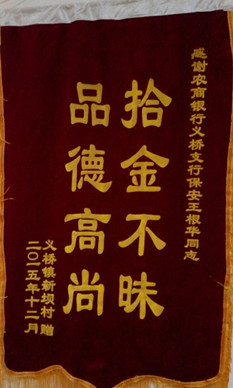 感谢农商银行义桥支行保安王根华同志
拾金不昧
品德高尚
义桥镇新坝村赠
二〇一五年十二月